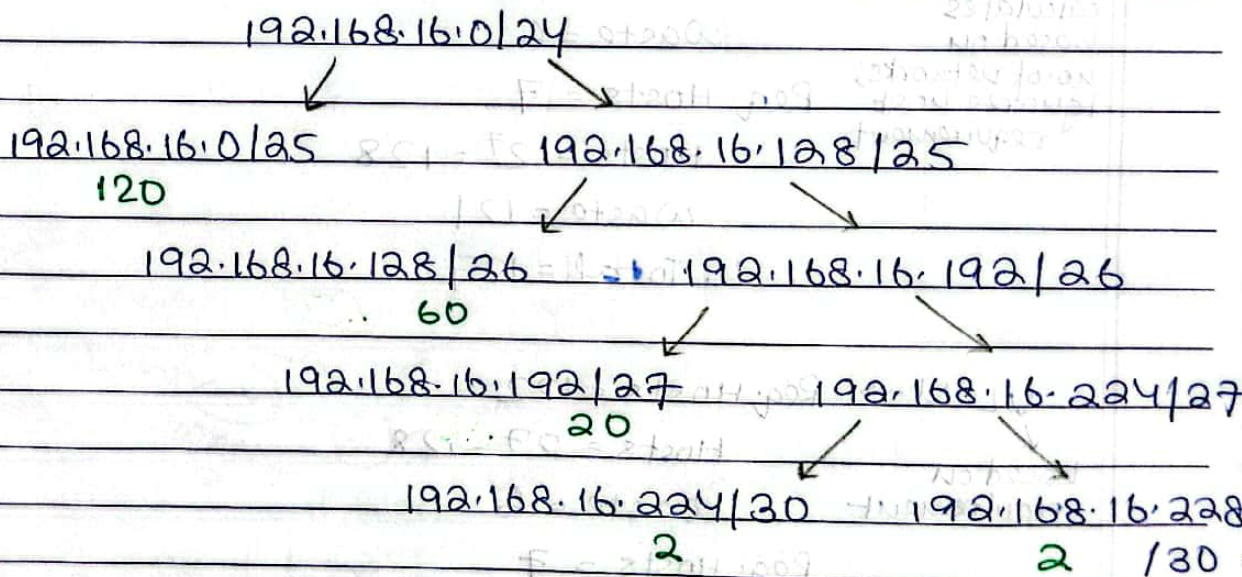 192.168.16.0/24
192.168.16.0/25 192.168.16.128/25
120
192.168.16.128/26 192.168.16.192/26
60
192.168.16.192/27 192.168.16.224/27
20
192.168.16.224/30 192.168.16.228
2 2 /30